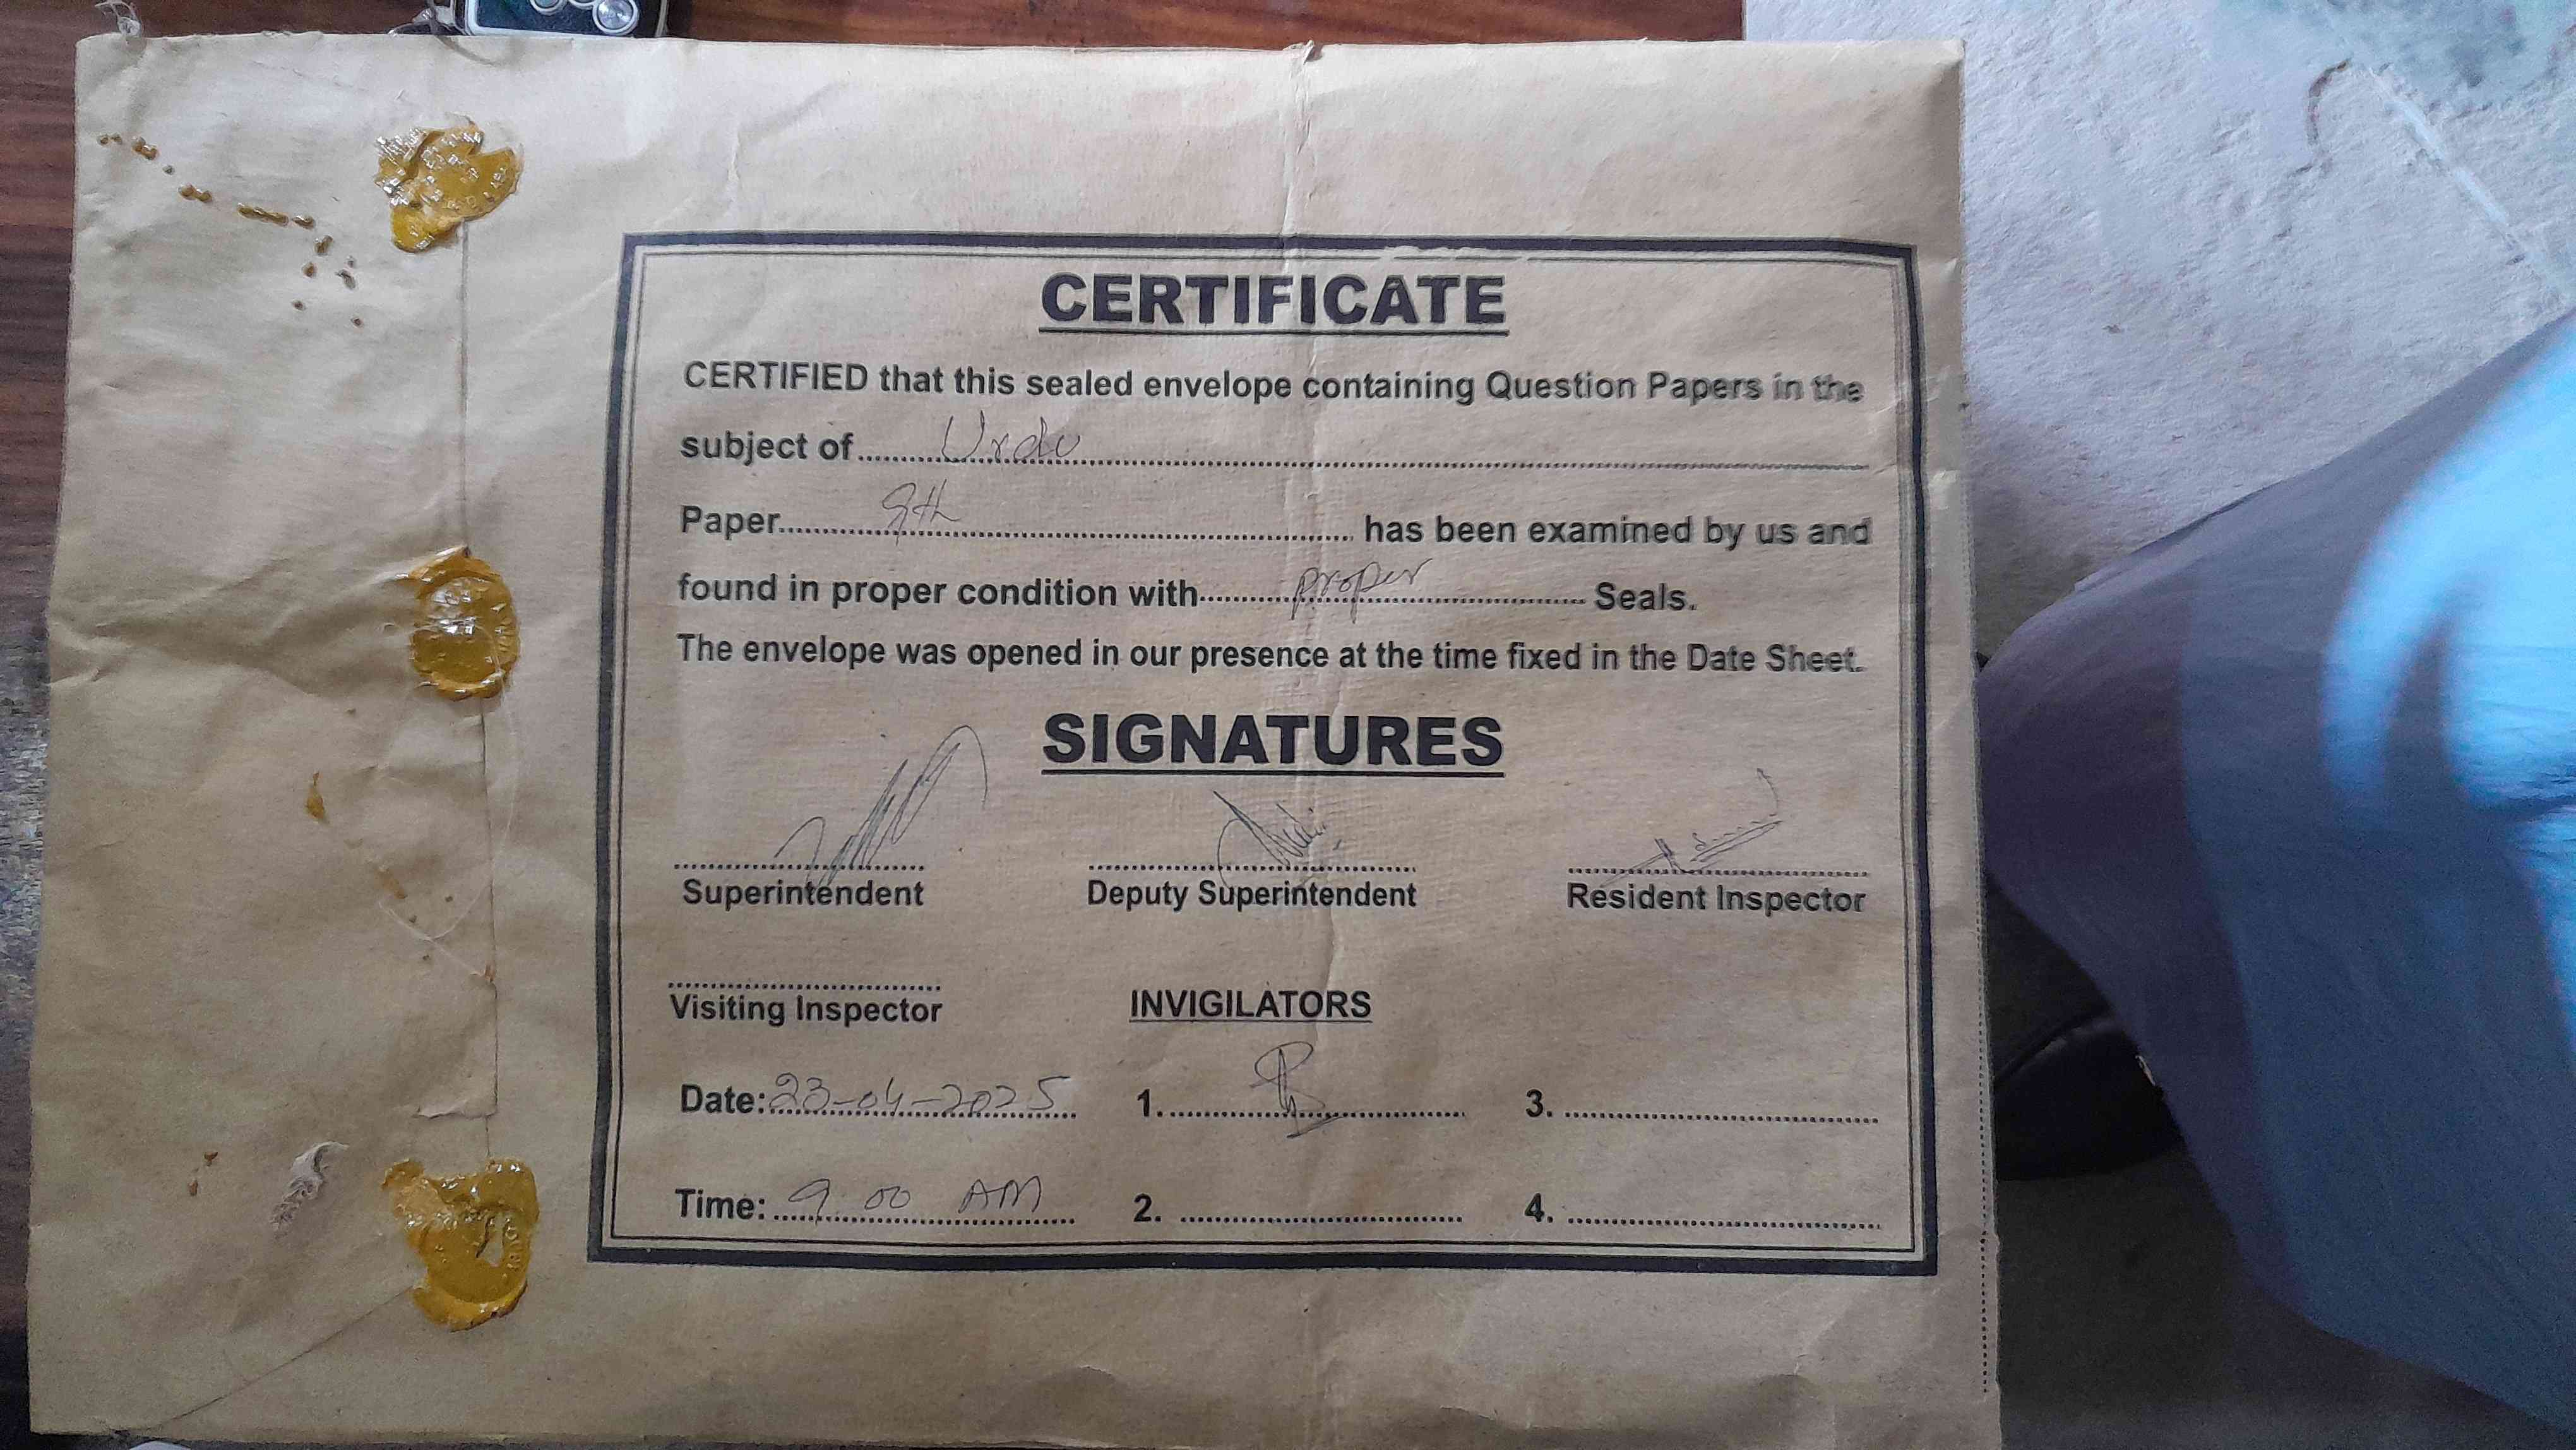 CERTIFICATE
CERTIFIED that this sealed envelope containing Question Papers in the
subject of Urdu
Paper 9th has been examined by us and
found in proper condition with proper Seals.
The envelope was opened in our presence at the time fixed in the Date Sheet.
SIGNATURES
Superintendent Deputy Superintendent Resident Inspector
Visiting Inspector INVIGILATORS
Date: 23-04-2025 1. 3.
Time: 9:00 AM 2. 4.